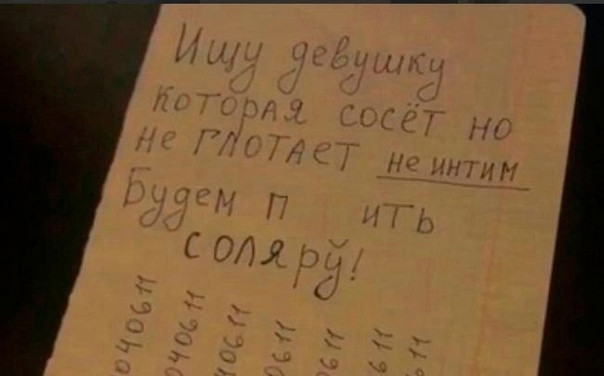 Ищу девушку
которая сосёт но
не глотает не интим
Будем п ить
соляру!
040611
040611
40611
0611
0611
611
611